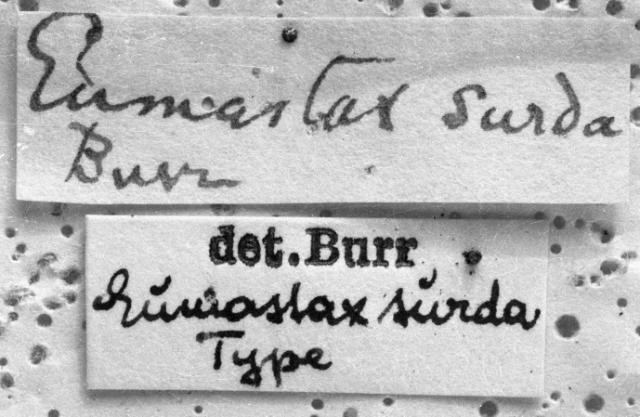 Eumastax surda
Burr
det. Burr
Eumastax surda
Type